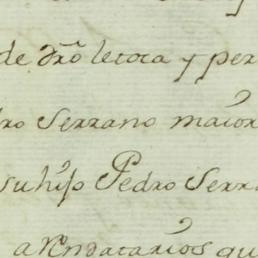 de dro le toca y per
ro Serrano maior
su hijo Pedro Serr
arrendatarios qu